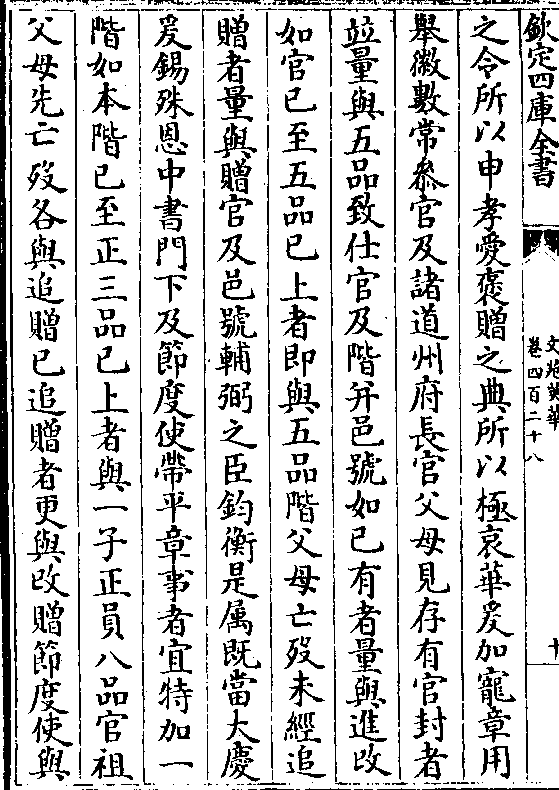 欽定四庫全書
文苑英華
卷四百二十八
十
之令所以申孝愛褒贈之典所以極哀華爰加寵章用
舉徽數常叅官及諸道州府長官父母見存有官封者
並量與五品致仕官及階并邑號如已有者量與進改
如官已至五品已上者即與五品階父母亡歿未經追
贈者量與贈官及邑號輔弼之臣鈞衡是属既當大慶
爰錫殊恩中書門下及節度使帶平章事者宜特加一
階如本階已至正三品已上者與一子正員八品官祖
父母先亡歿各與追贈已追贈者更與改贈節度使與